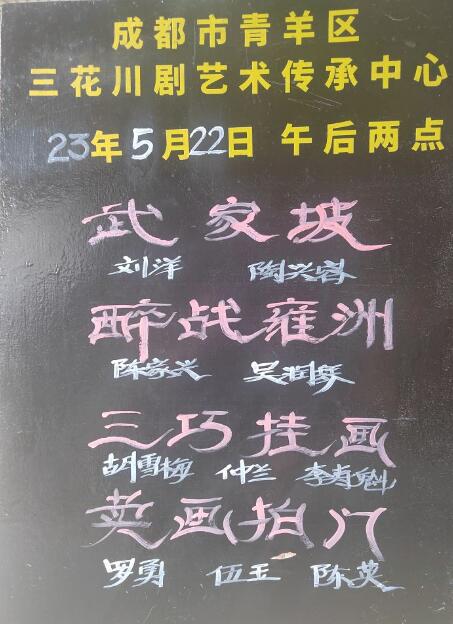 成都市青羊区
三花川剧艺术传承中心
23年5月22日 午后两点
武家坡
刘洋 陶兴容
醉战雍洲
陈家兴 吴润琴
三巧挂画
胡雪梅 仲兰 李春魁
英画拍门
罗勇 伍玉 陈英